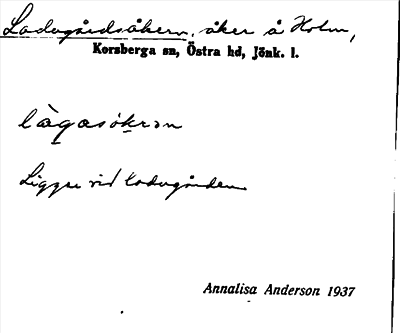 Ladugårdsåkern, åker å Holm,
Korsberga sn, Östra hd, Jönk. l.
làgasókrən
Ligger vid ladugården
Annalisa Anderson 1937